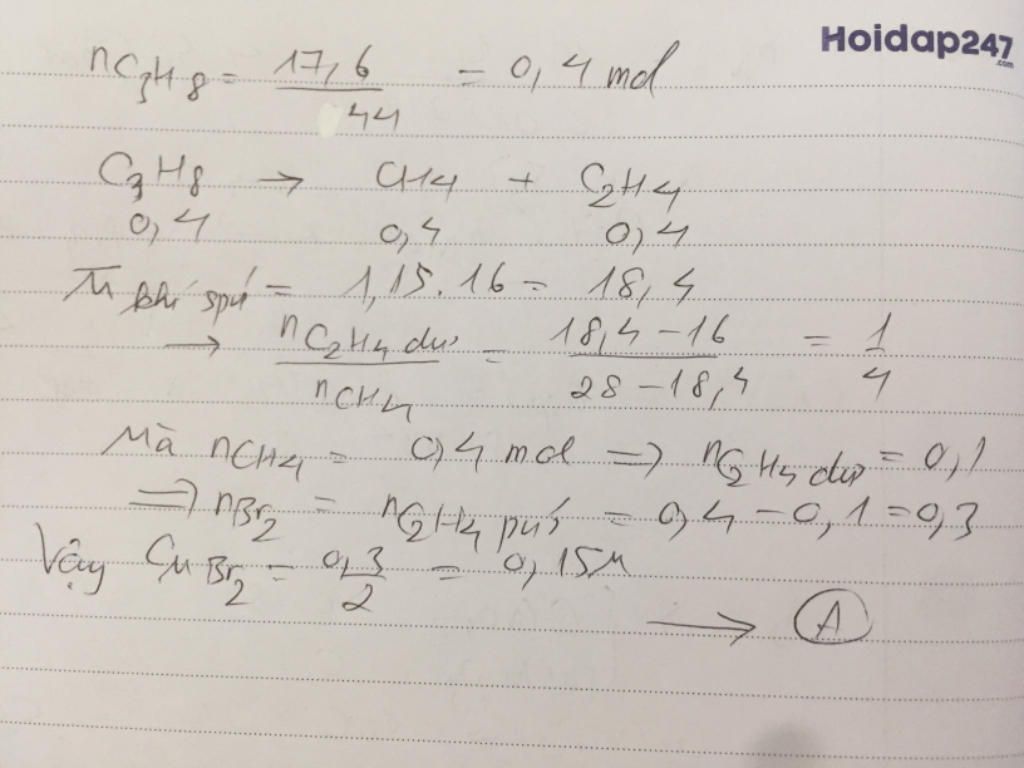 Hoidap247
.com
nC3H8 = 17,6/44 = 0,4 mol
C3H8 → CH4 + C2H4
0,4 0,4 0,4
M̄ khí spứ = 1,15.16 = 18,4
→ nC2H4 dư/nCH4 = 18,4 - 16/28 - 18,4 = 1/4
Mà nCH4 = 0,4 mol => nC2H4 dư = 0,1
=> nBr2 = nC2H4 pứ = 0,4 - 0,1 = 0,3
Vậy CM Br2 = 0,3/2 = 0,15M
→ A